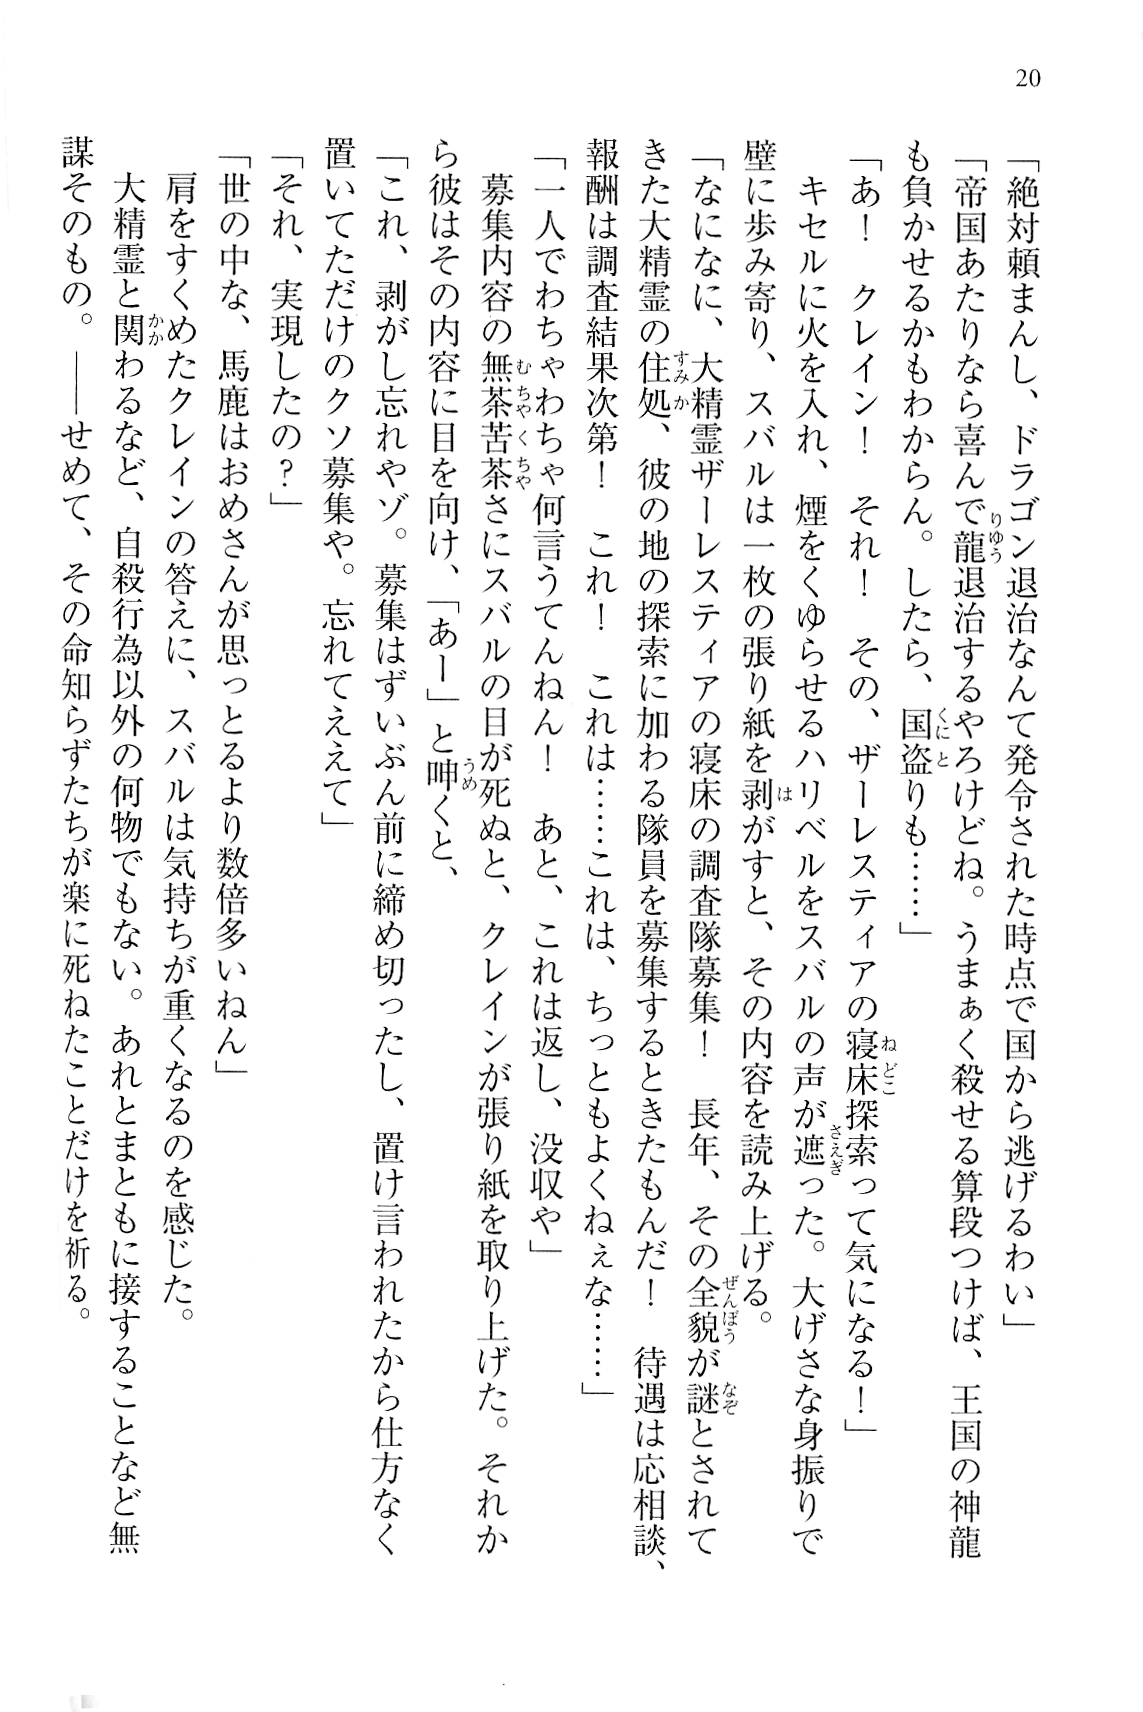 20
「絶対頼まんし、ドラゴン退治なんて発令された時点で国から逃げるわい」
「帝国あたりなら喜んで龍退治するやろけどね。うまぁく殺せる算段つけば、王国の神龍
も負かせるかもわからん。したら、国盗りも……」
「あ！　クレイン！　それ！　その、ザーレスティアの寝床探索って気になる！」
　キセルに火を入れ、煙をくゆらせるハリベルをスバルの声が遮った。大げさな身振りで
壁に歩み寄り、スバルは一枚の張り紙を剥がすと、その内容を読み上げる。
「なになに、大精霊ザーレスティアの寝床の調査隊募集！　長年、その全貌が謎とされて
きた大精霊の住処、彼の地の探索に加わる隊員を募集するときたもんだ！　待遇は応相談、
報酬は調査結果次第！　これ！　これは……これは、ちっともよくねぇな……」
「一人でわちゃわちゃ何言うてんねん！　あと、これは返し、没収や」
　募集内容の無茶苦茶さにスバルの目が死ぬと、クレインが張り紙を取り上げた。それか
ら彼はその内容に目を向け、「あー」と呻くと、
「これ、剥がし忘れやゾ。募集はずいぶん前に締め切ったし、置け言われたから仕方なく
置いてただけのクソ募集や。忘れてええて」
「それ、実現したの？」
「世の中な、馬鹿はおめさんが思っとるより数倍多いねん」
　肩をすくめたクレインの答えに、スバルは気持ちが重くなるのを感じた。
　大精霊と関わるなど、自殺行為以外の何物でもない。あれとまともに接することなど無
謀そのもの。――せめて、その命知らずたちが楽に死ねたことだけを祈る。